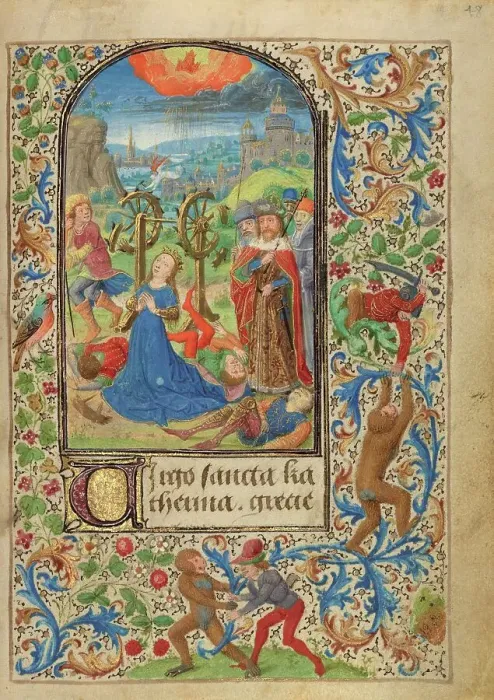 Uirgo sancta ka
therina . grecie